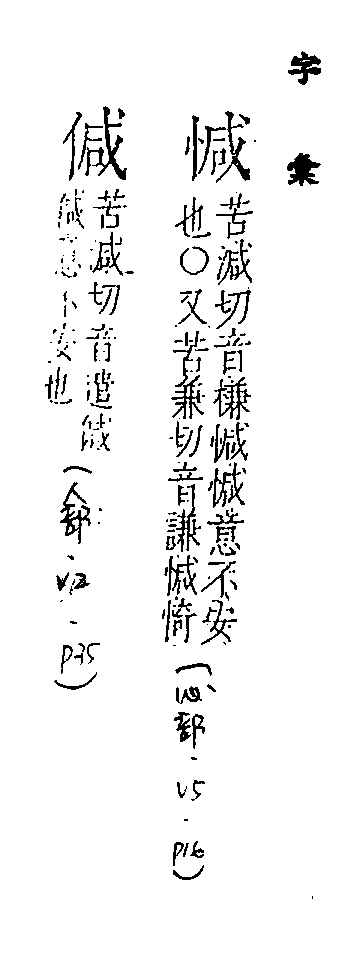 字彙
㦗
苦減切音槏㦗㦗意不安
也○又苦兼切音謙㦗㥓
(心部.V5.P16)
㑘
苦減切音遣㑘
㑘意不安也
(人部.V12.P35)